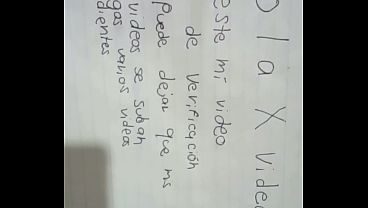 ola X vide
este mi video
de verificación
puede dejar que ms
videos se suban
gas varios videos
dientes